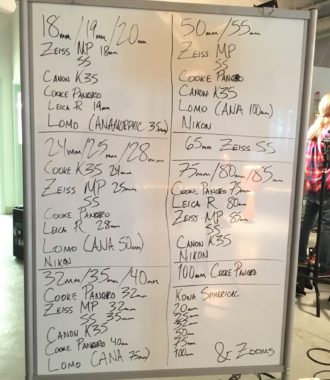 18mm/19mm/20mm
ZEISS MP 18mm
SS
CANON K35
COOKE PANCRO
LEICA R 19mm
LOMO (ANAMORPHIC 35mm)
24mm/25mm/28mm
COOKE K35 24mm
ZEISS MP 25mm
SS
COOKE PANCRO
LEICA R 28mm
LOMO (ANA 50mm)
NIKON
32mm/35mm/40mm
COOKE PANCRO 32mm
ZEISS MP 32mm
SS 35mm
CANON K35
COOKE PANCRO 40mm
LOMO (ANA 75mm)
50mm/55mm
ZEISS MP
SS
COOKE PANCRO
CANON K35
LOMO (ANA 100mm)
NIKON
65mm ZEISS SS
75mm/80mm/85mm
COOKE PANCRO 75mm
LEICA R 80mm
ZEISS MP 85mm
SS
CANON K35
NIKON
100mm COOKE PANCRO
KOWA SPHERICAL
20mm
25mm
32mm
50mm
75mm
100mm
& ZOOMS